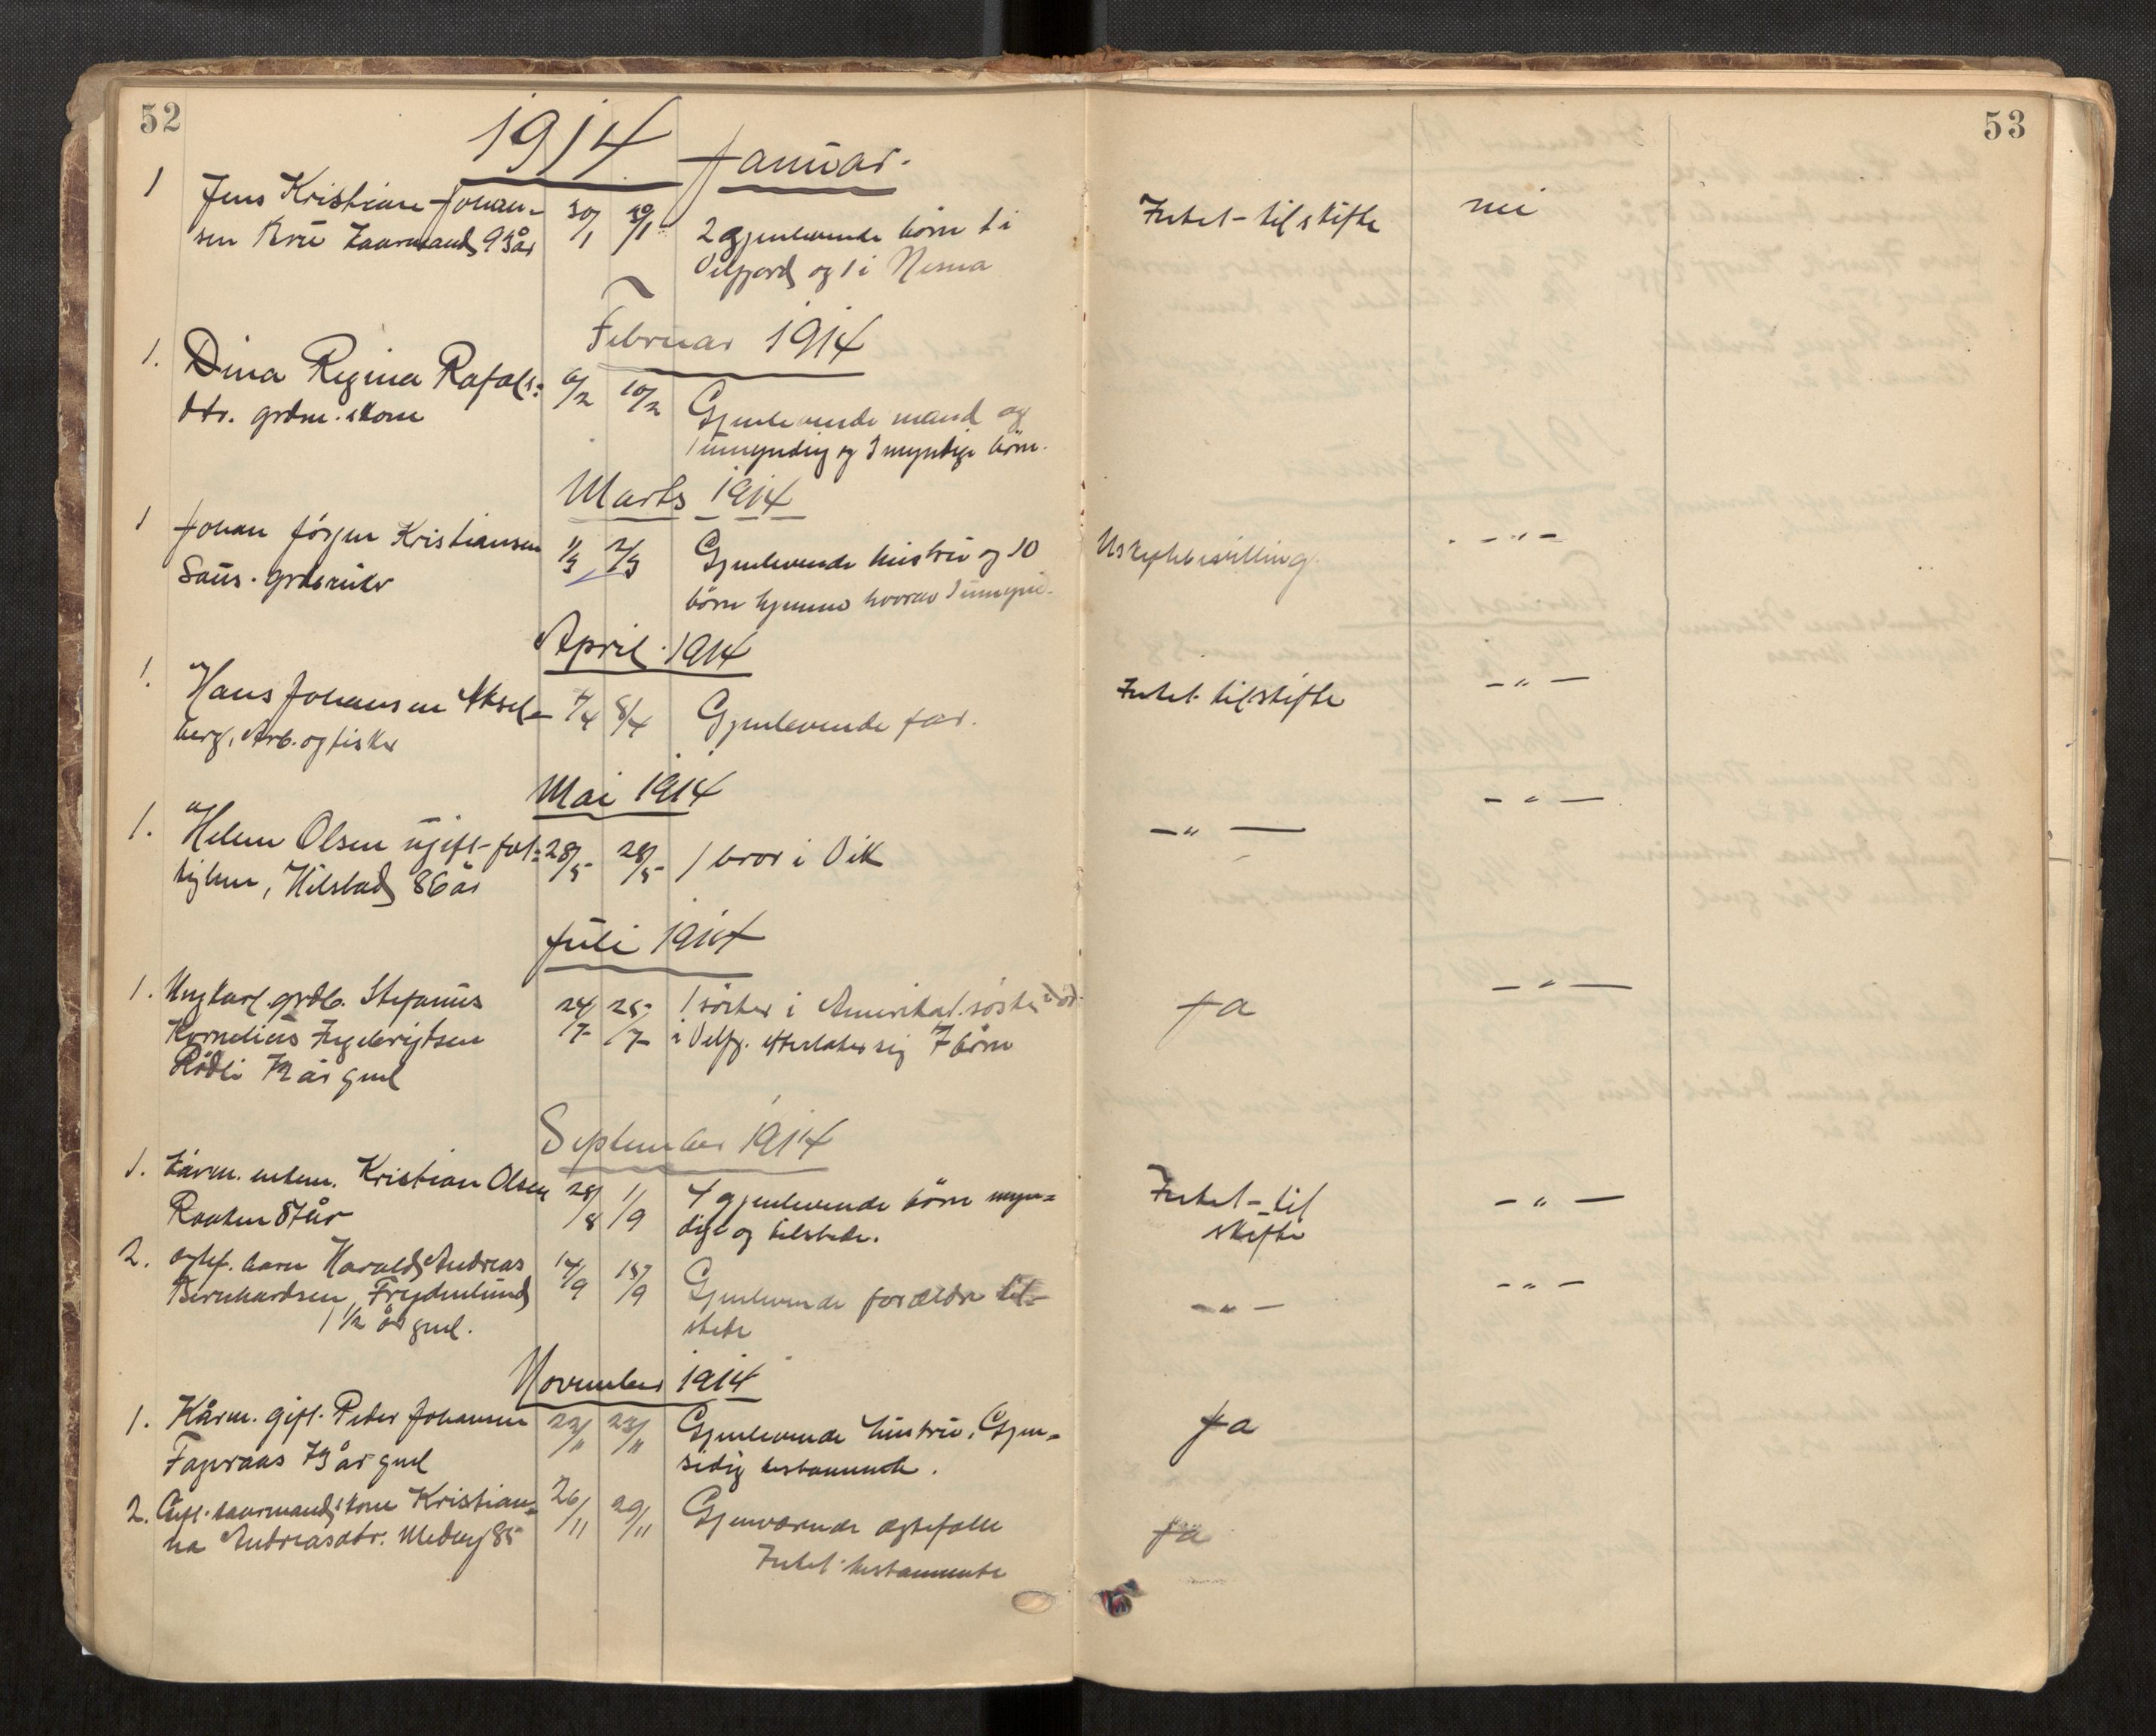 52
53
1914
Januar.
1 Jens Kristian Johan-
sen Kaarmand 93 år
30/1 30/1
2 gjenlevende børn 1 i
Velfjord og 1 i Nesna
Intet til skifte
nei
Februar 1914
1. Dina Regina Rafals-
dtr. grdm. kone
6/2 10/2
Gjenlevende mand og
1 umyndig og 3 myndige børn.
Marts 1914
1 Johan Jörgen Kristiansen
Saus. grdbruker
1/3 2/3
Gjenlevende hustru og 10
børn hjemme hvorav umynd.
Uskiftebevilling
- " -
April 1914
1. Hans Johansen Aksel-
berg, Arb. og fisker
7/4 8/4
Gjenlevende far.
Intet til skifte
- " -
Mai 1914
1. Helene Olsen ugift fat-
tiglem, Hilstad 86 år
28/5 28/5
1 bror i Vik
- " -
- " -
Juli 1914
1. Ungkarl. grdb. Stefanus
Kornelius Ingebrigtsen
Rödli 72 år gml
24/7 25/7
1 søster i Amerika 1 søster död
i Velfj. efterlater sig 7 børn
Ja
- " -
September 1914
1. Kårm. enkem. Kristian Olsen
87 år
28/8 1/9
4 gjenlevende børn myn-
dige og tilstede.
Intet til
skifte
- " -
2. egtef. barn Harald Andreas
Bernhardsen, Frydenlund
1 1/2 år gml.
14/9 15/9
Gjenlevende forældre til-
stede
- " -
- " -
November 1914
1. Kårm. gift. Peder Johansen
Fageraas 73 år gml
22/11 23/11
Gjenlevende hustru. Gjen-
sidig testamente.
Ja
2. Gift. kaarmandskone Kristian-
na Andreasdtr. 85
26/11 29/11
Gjenværende ægtefælle
Intet testamente
Ja